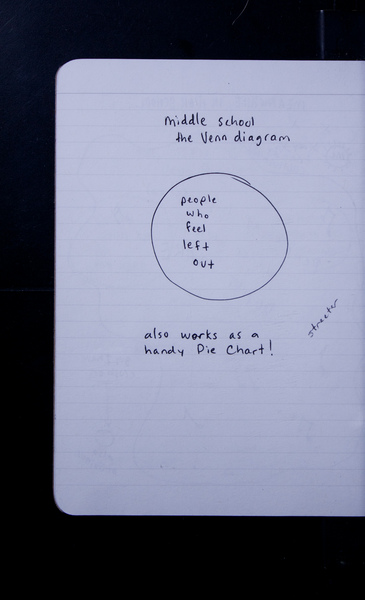 middle school
the Venn diagram
people
who
feel
left
out
also works as a
handy Pie Chart!
streeter